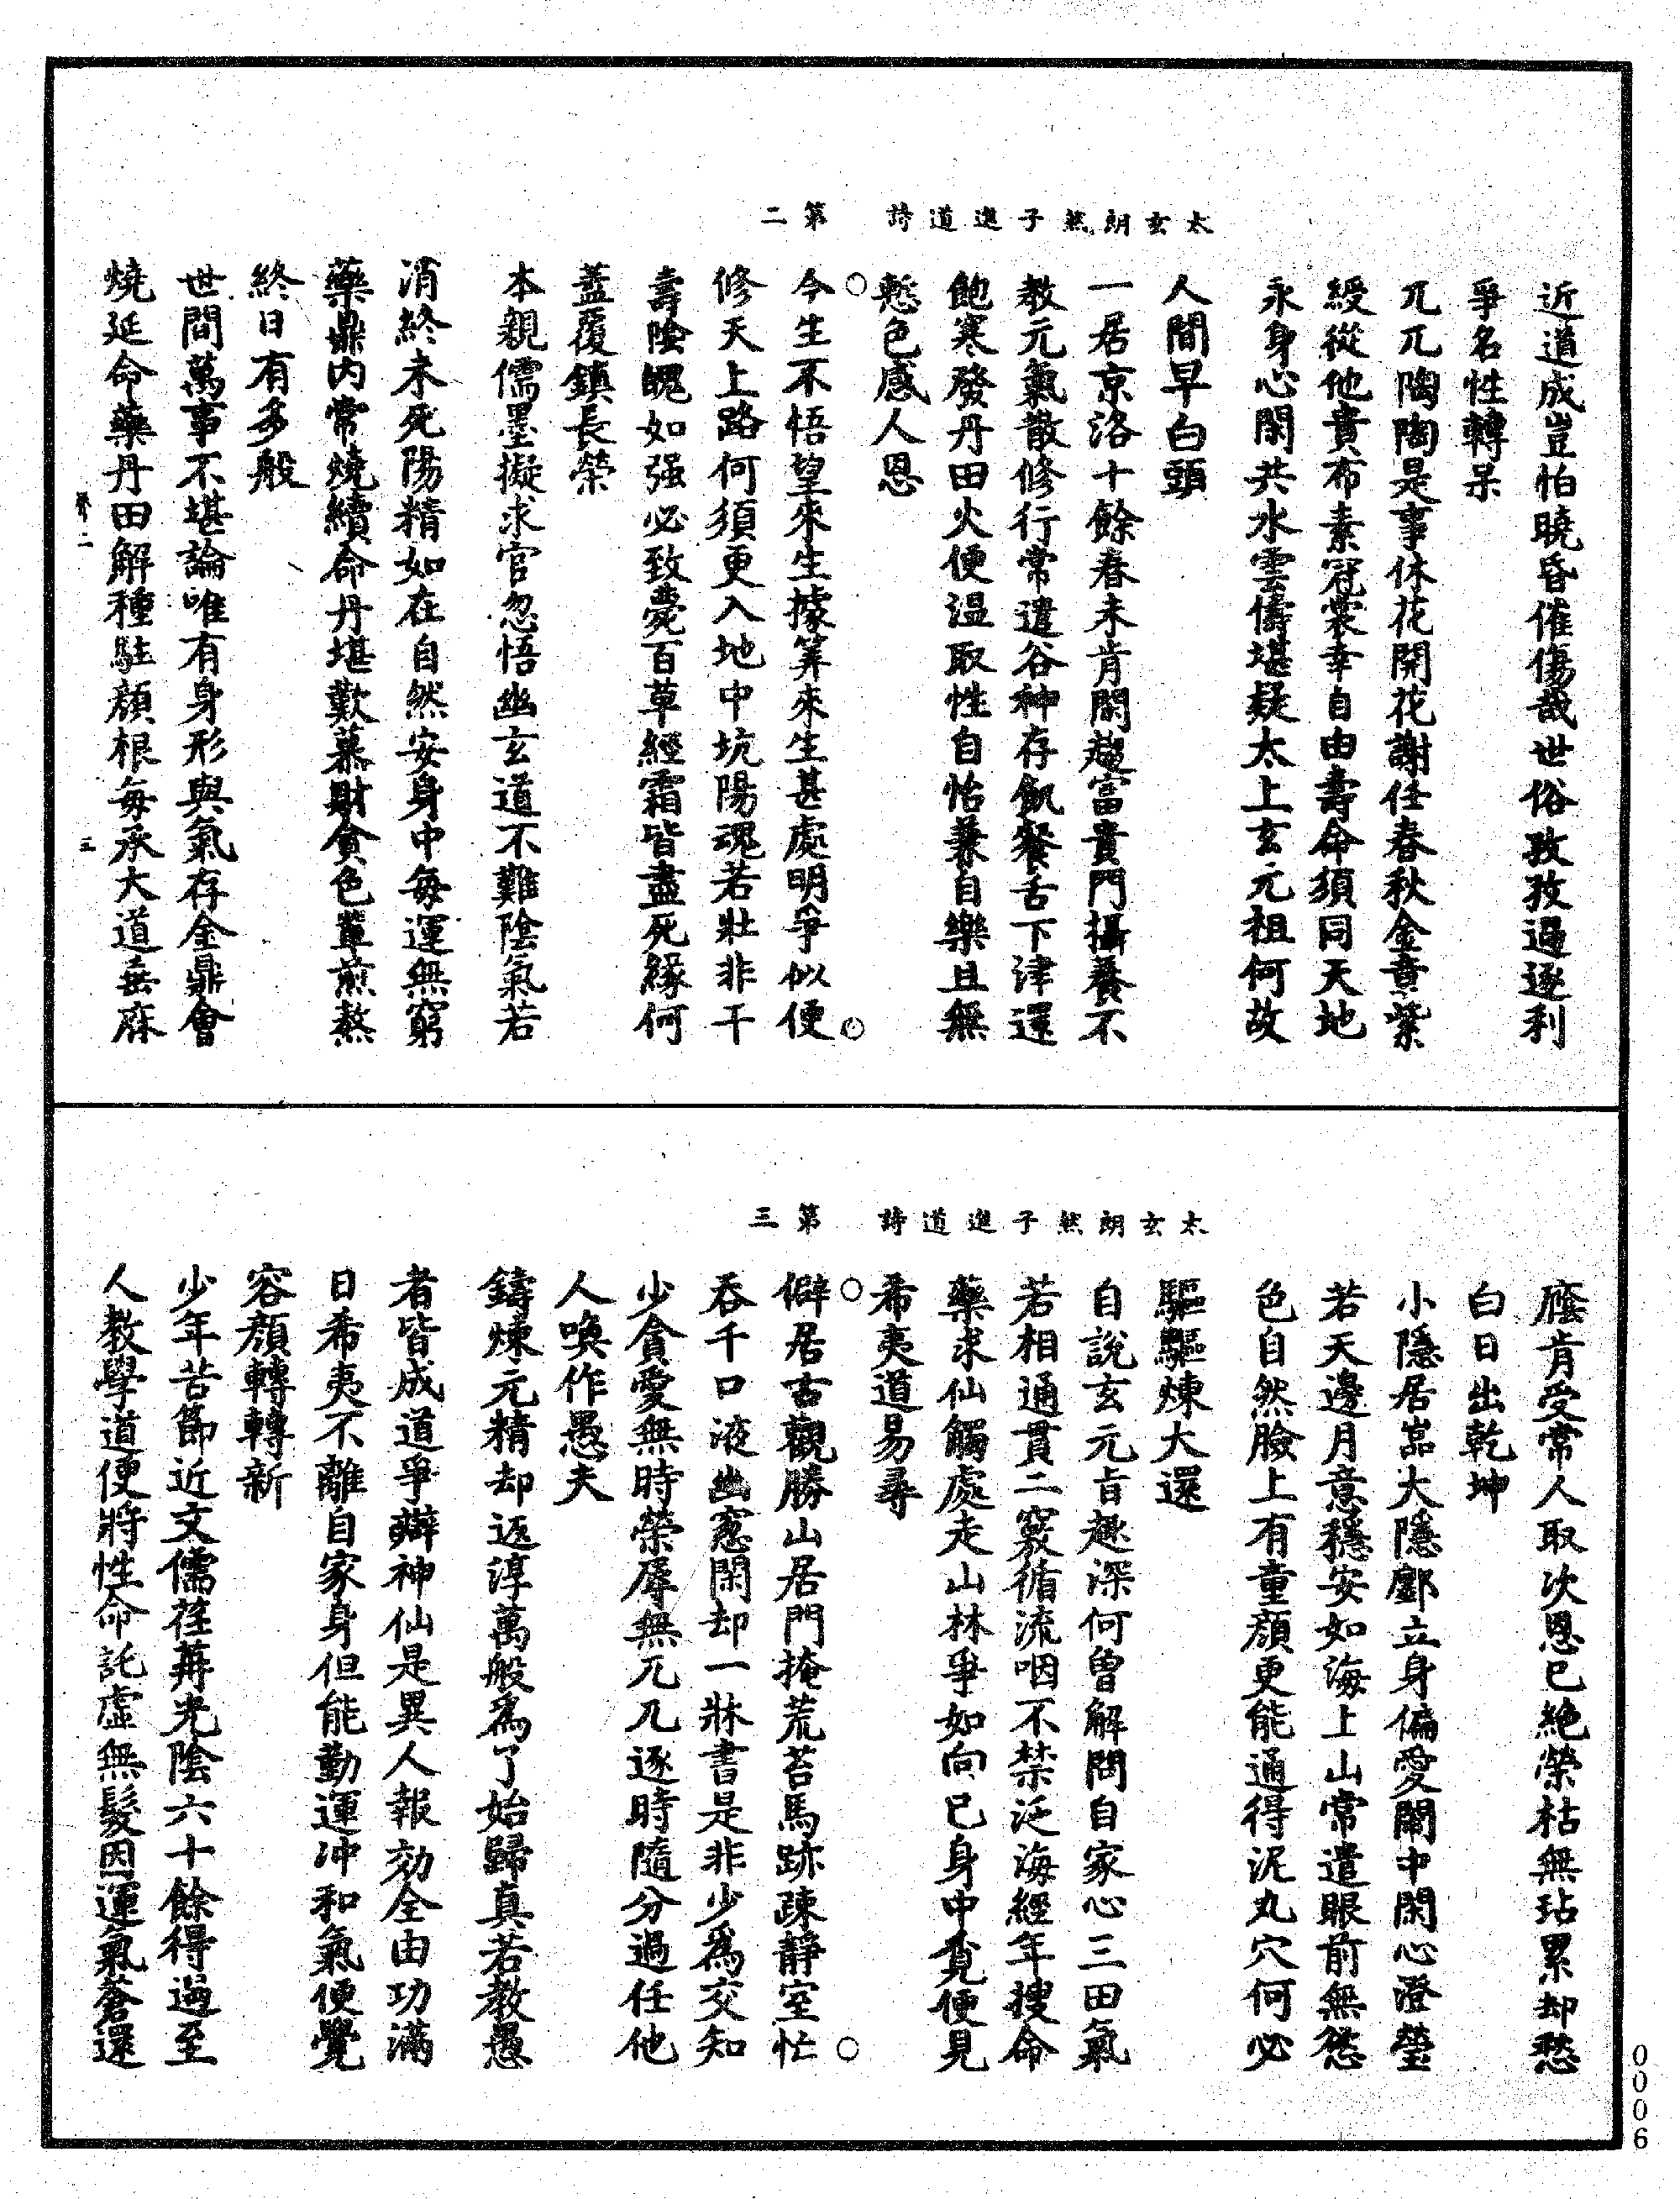 近道成豈怕曉昏催傷哉世俗孜孜過逐利
爭名性轉呆
兀兀陶陶是事休花開花謝任春秋金章紫
綬從他貴布素冠裳幸自由壽命須同天地
永身心閑共水雲儔堪疑太上玄元祖何故
人間早白頭
一居京洛十餘春未肯閑趨富貴門攝養不
教元氣散修行常遣谷神存飢餐舌下津還
飽寒發丹田火便溫取性自怡兼自樂且無
慙色感人恩
太玄朗然子進道詩 第二
今生不悟望來生據筭來生甚處明爭似便
修天上路何須更入地中坑陽魂若壯非干
壽陰魄如强必致薨百草經霜皆盡死緣何
蓋覆鎮長榮
本親儒墨擬求官忽悟幽玄道不難陰氣若
消終未死陽精如在自然安身中每運無窮
藥鼎內常燒續命丹堪歎慕財貪色輩煎熬
終日有多般
世間萬事不堪論唯有身形與氣存金鼎會
燒延命藥丹田解種駐顔根每承大道垂庥
二
三
廕肯受常人取次恩已絶榮枯無玷累却愁
白日出乾坤
小隱居嵓大隱鄽立身偏愛閙中閑心澄瑩
若天邊月意穩安如海上山常遣眼前無慾
色自然臉上有童顔更能通得泥丸穴何必
驅驅煉大還
自說玄元旨趣深何曾解問自家心三田氣
若相通貫二竅循流咽不禁泛海經年搜命
藥求仙觸處走山林爭如向已身中覔便見
希夷道易尋
太玄朗然子進道詩 第三
僻居古觀勝山居門掩荒苔馬跡踈靜室忙
吞千口液幽窻閑却一牀書是非少爲交知
少貪愛無時榮辱無兀兀逐時隨分過任他
人喚作愚夫
鑄煉元精却返淳萬般爲了始歸真若教愚
者皆成道爭辯神仙是異人報効全由功滿
日希夷不離自家身但能勤運冲和氣便覺
容顔轉轉新
少年苦節近文儒荏苒光陰六十餘得過至
人教學道便將性命託虛無髮因運氣蒼還
0006